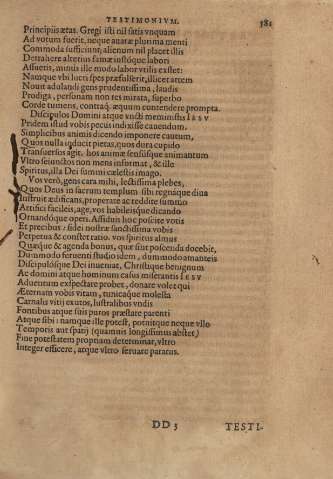 TESTIMONIVM. 581
Principiis ætas. Gregi isti nil satis vnquam
Ad votum fuerit, neque auaræ plurima menti
Commoda sufficiunt, alienum nil placet illis
Detrahere alterius famæ iustoque labori
Assuetis, minus ille modo labor vtilis exstet:
Namque vbi lucri spes præfulserit, illicet artem
Nouit adulandi gens prudentissima, laudis
Prodiga, personam non res mirata, superbo
Corde tumens, contraq. æquum contendere prompta.
Discipulos Domini atque vncti meministis IESV
Pridem istud vobis pecus indixisse cauendum.
Simplicibus animis dicendo imponere cautum,
Quos nulla inducit pietas, quos dura cupido
Transuersos agit. hos animæ sensusque animantum
Vltro seiunctos non mens informat, & ille
Spiritus, illa Dei summi cælestis imago.
Vos verò, gens cara mihi, lectissima plebes,
Quos Deus in sacrum templum sibi regnaque diua
Instruit ædificans, properate ac reddite summo
Artifici facileis, age, vos habileisque dicando
Ornandóque operi. Assidui hoc poscite votis
Et precibus: fidei nostræ sanctissima vobis
Perpetua & constet ratio. vos spiritus almus
Quæque & agenda bonus, quæ sint poscenda docebit,
Dummodo feruenti studio idem, dummodo amanteis
Discipulósque Dei inueniat, Christúque benignum
Ac domini atque hominum casus miserantis IESV
Aduentum exspectare probet, donare volet qui
Æternam vobis vitam, tunicáque molesta
Carnalis vitij exutos, lustralibus vndis
Fontibus atque suis puros præstare parenti
Atque sibi: namque ille potest, potuitque neque vllo
Temporis aut spatij (quamuis longissimus abstet)
Fine potestatem propriam determinat, vltro
Integer efficere, atque vltro seruare paratus.
DD 3 TESTI-